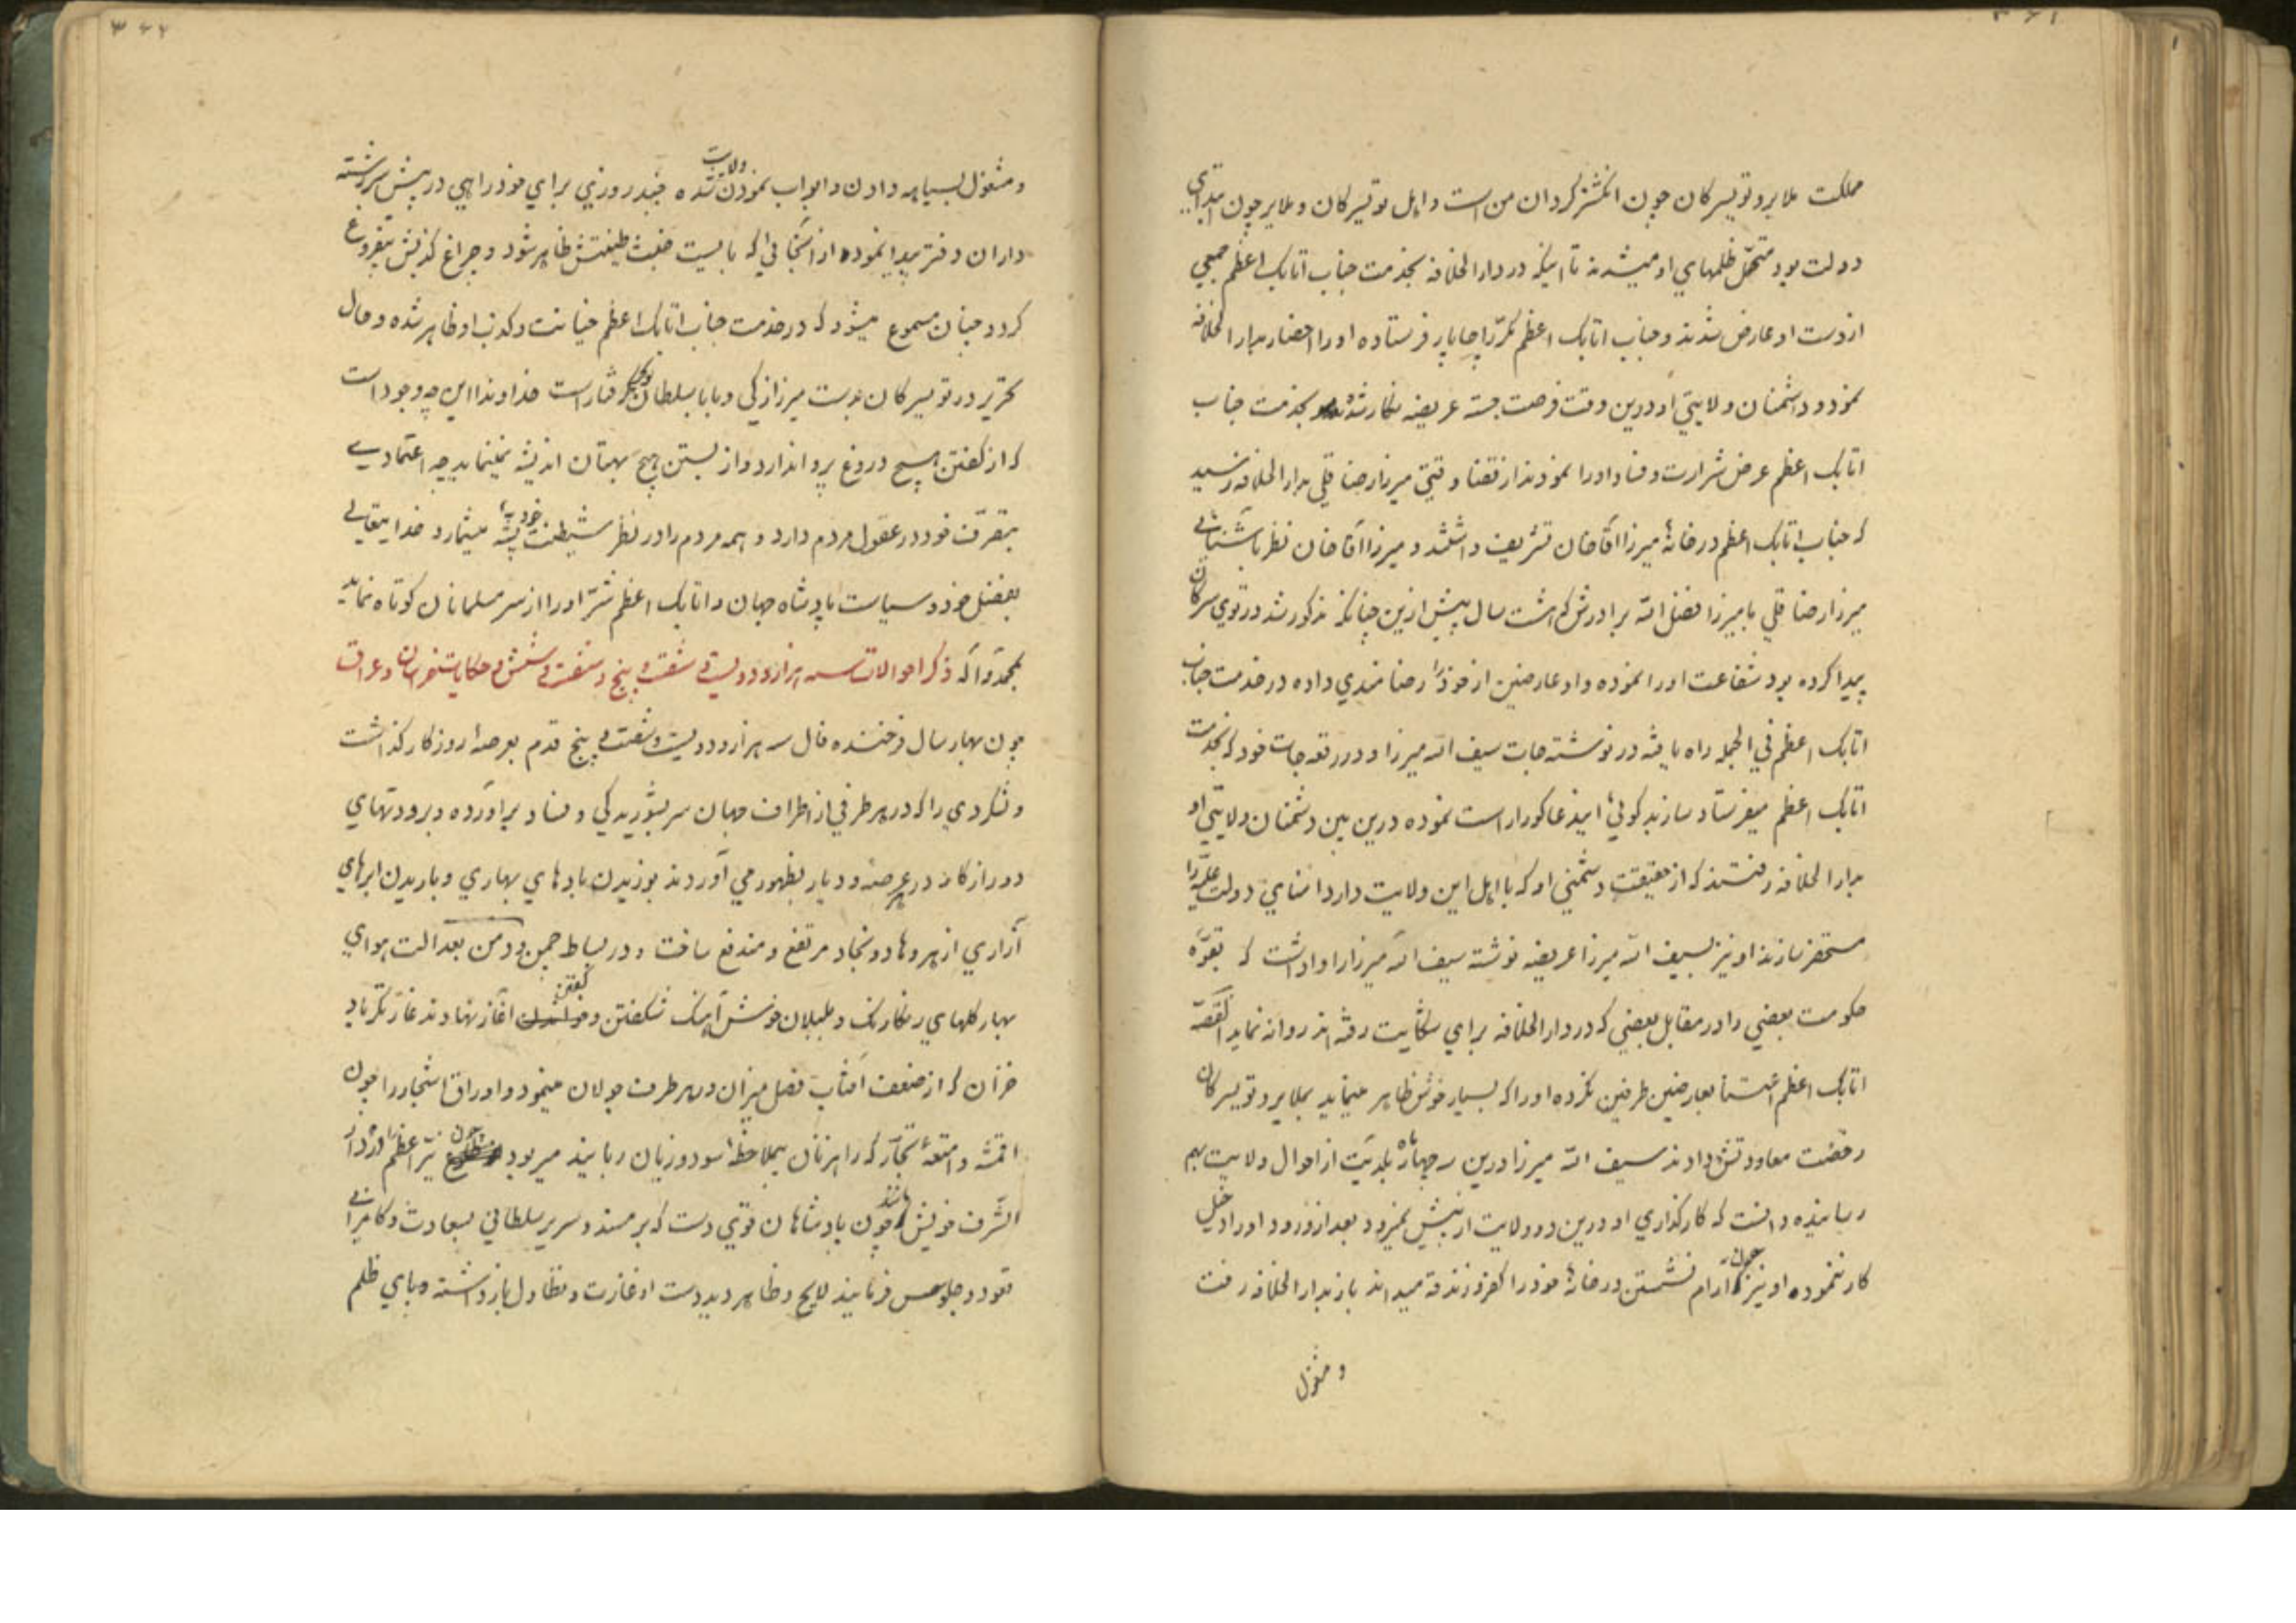 ۳۶۱
مملکت ملایر و تویسرکان چون انگشتر گردان من است و اهل تویسرکان و ملایر چون ابتدای
دولت بود متحمّل ظلمهای او میشدند تا اینکه در دار الخلافه بخدمت جناب اتابک اعظم جمعی
از دست او عارض شدند و جناب اتابک اعظم مکرّرا چاپار فرستاده او را احضار بدار الخلافه
نمود و دشمنان ولایتی او درین وقت فرصت جسته عریضه نگار شده بخدمت جناب
اتابک اعظم عرض شرارت و فساد او را نمودند از قضا وقتی میرزا رضا قلی بدار الخلافه رسید
که جناب اتابک اعظم در خانهٔ میرزا آقا خان تشریف داشتند و میرزا آقا خان نظر بآشنائی
میرزا رضا قلی با میرزا فضل الله برادرش که هشت سال پیش ازین چنانکه مذکور شد در توی سرکان
پیدا کرده بود شفاعت او را نموده و او عارضین از خود را رضامندی داده در خدمت جناب
اتابک اعظم فی الجمله راه یافته در نوشته جات سیف الله میرزا و در رقعه جات خود که بخدمت
اتابک اعظم میفرستاد سازندکوئی نموده درین بین دشمنان ولایتی او
بدار الخلافه رفتند که از حقیقت دشمنی او که با اهل این ولایت دارد امنای دولت علیّه را
مستحضر سازند او نیز بسیف الله میرزا عریضه نوشته سیف الله میرزا را واداشت که بقوّه
حکومت بعضی را در مقابل بعضی که در دار الخلافه برای شکایت رفته اند روانه نماید القصّه
اتابک اعظم اعتنا بعارضین طرفین نکرده او را که بسیار خوش ظاهر مینماید بملایر و تویسرکان
رخصت معاودتش دادند سیف الله میرزا درین سه چهار ماه بلدیّت از احوال ولایت بهم
رسانیده دانست که کارگذاری او درین دو ولایت از پیش نمیرود بعد از ورود او را دخیل
کار ننموده او نیز چون آرام نشستن در خانهٔ خود را کفر و زندقه میداند باز بدار الخلافه رفت
و مشغول
۳۶۲
و مشغول بسیاهه دادن و ابواب نمودن ولایت شده چند روزی برای خود راهی در پیش سررشته
داران دفتر پیدا نموده از آنجائی که بایست خبث طینتش ظاهر شود و چراغ کذبش بیفروغ
گردد چنان مسموع میشود که در خدمت جناب اتابک اعظم خیانت و کذب او ظاهر شده و حال
تحریر در تویسرکان بدست میرزا زکی و بابا سلطان توپچی گرفتار است خداوندا این چه وجود است
که از گفتن هیچ دروغ پروا ندارد و از بستن هیچ بهتان اندیشه نمینماید چه اعتمادی
بتصرّف خود در عقول مردم دارد و همه مردم را در نظر شیطنت خود پشه میشمارد خدایتعالی
بفضل خود و سیاست پادشاه جهان و اتابک اعظم شرّ او را از سر مسلمانان کوتاه نماید
بمحمّد و آله ذکر احوالات سنه هزار و دویست و شصت و پنج و شصت و شش و حکایت خراسان و عراق
چون بهار سال فرخنده فال سنه هزار و دویست و شصت و پنج قدم بعرصهٔ روزگار گذاشت
و لشکر دی را که در هر طرفی از اطراف جهان سر بشوریدگی و فساد برآورده و برودتهای
دور از کار در هر عرصه و دیار بظهور می آوردند بوزیدن بادهای بهاری و باریدن ابرهای
آزاری از هر وهاد و نجاد مرتفع و مندفع ساخت و در بساط چمن و دمن بعدالت هوای
بهار گلهای رنگارنگ و بلبلان خوش آهنگ شکفتن و گفتن آغاز نهادند غارتگر باد
خزان که از ضعف آفتاب فصل میزان در هر طرف جولان مینمود و اوراق اشجار را چون
اقمشه و امتعه تجّار که راهزنان بیملاحظه سود و زیان ربایند میربود چون نیّر اعظم را در دار
الشّرف خویش چون پادشاهان قوی دست که بر مسند و سریر سلطانی بسعادت و کامرانی
قعود و جلوس فرمایند لایح و ظاهر دید دست از غارت و تطاول باز داشته و پای ظلم